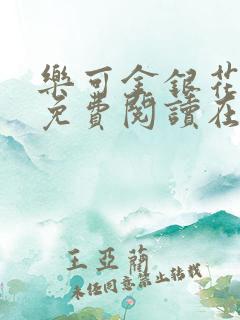 樂可金銀花
免費閱讀在
王亞蘭
未任同意禁止转载